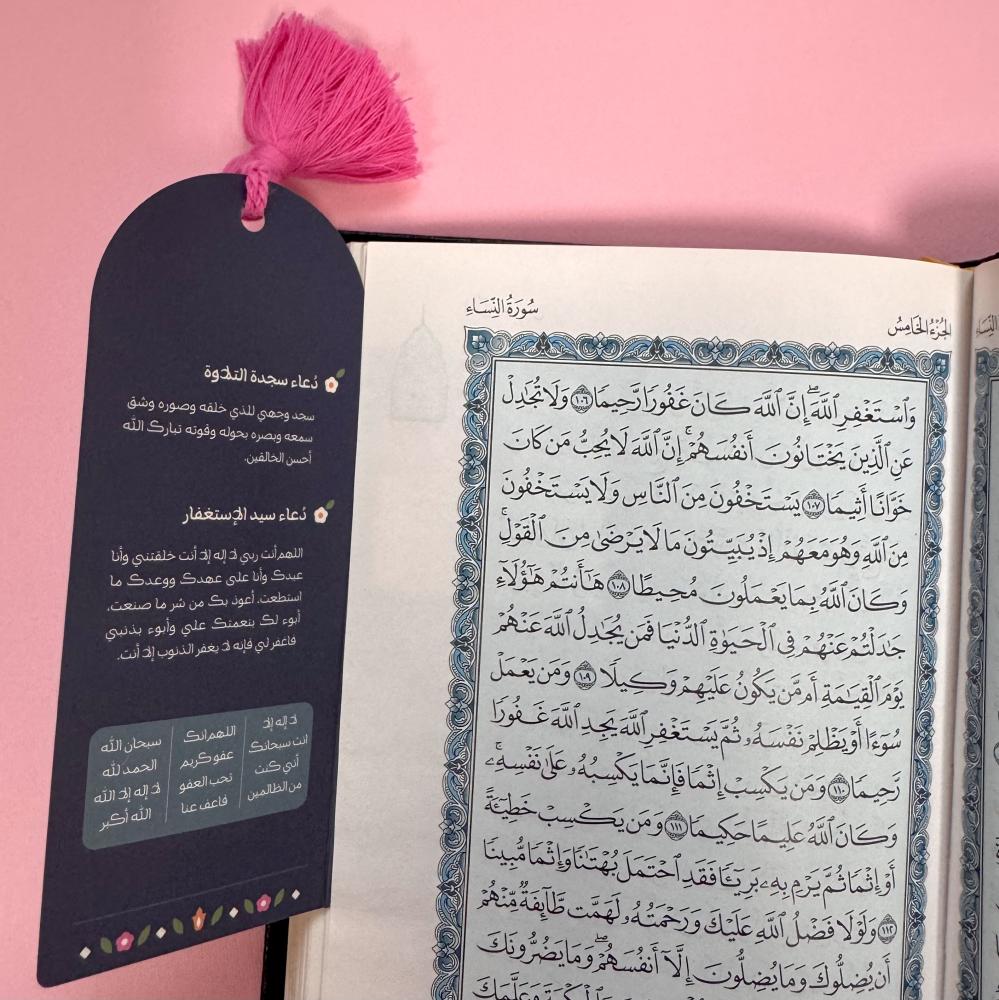 دُعاء سجدة التلاوة
سجد وجهي للذي خلقه وصوره وشق
سمعه وبصره بحوله وقوته تبارك الله
أحسن الخالقين.
دُعاء سيد الإستغفار
اللهم أنت ربي لا إله إلا أنت خلقتني وأنا
عبدك وأنا على عهدك ووعدك ما
استطعت، أعوذ بك من شر ما صنعت،
أبوء لك بنعمتك علي وأبوء بذنبي
فاغفر لي فإنه لا يغفر الذنوب إلا أنت.
لا إله إلا
انت سبحانك
أني كنت
من الظالمين
اللهم انك
عفو كريم
تحب العفو
فاعف عنا
سبحان الله
الحمد لله
لا إله إلا الله
الله أكبر
الجُزْءُ الخَامِسُ
سُورَةُ النِّسَاءِ
وَٱسْتَغْفِرِ ٱللَّهَۖ إِنَّ ٱللَّهَ كَانَ غَفُورًا رَّحِيمًا ١٠٦ وَلَا تُجَٰدِلْ
عَنِ ٱلَّذِينَ يَخْتَانُونَ أَنفُسَهُمْۚ إِنَّ ٱللَّهَ لَا يُحِبُّ مَن كَانَ
خَوَّانًا أَثِيمًا ١٠٧ يَسْتَخْفُونَ مِنَ ٱلنَّاسِ وَلَا يَسْتَخْفُونَ
مِنَ ٱللَّهِ وَهُوَ مَعَهُمْ إِذْ يُبَيِّتُونَ مَا لَا يَرْضَىٰ مِنَ ٱلْقَوْلِۚ
وَكَانَ ٱللَّهُ بِمَا يَعْمَلُونَ مُحِيطًا ١٠٨ هَٰٓأَنتُمْ هَٰٓؤُلَآءِ
جَٰدَلْتُمْ عَنْهُمْ فِي ٱلْحَيَوٰةِ ٱلدُّنْيَا فَمَن يُجَٰدِلُ ٱللَّهَ عَنْهُمْ
يَوْمَ ٱلْقِيَٰمَةِ أَم مَّن يَكُونُ عَلَيْهِمْ وَكِيلًا ١٠٩ وَمَن يَعْمَلْ
سُوٓءًا أَوْ يَظْلِمْ نَفْسَهُۥ ثُمَّ يَسْتَغْفِرِ ٱللَّهَ يَجِدِ ٱللَّهَ غَفُورًا
رَّحِيمًا ١١٠ وَمَن يَكْسِبْ إِثْمًا فَإِنَّمَا يَكْسِبُهُۥ عَلَىٰ نَفْسِهِۦۚ
وَكَانَ ٱللَّهُ عَلِيمًا حَكِيمًا ١١١ وَمَن يَكْسِبْ خَطِيٓـَٔةً
أَوْ إِثْمًا ثُمَّ يَرْمِ بِهِۦ بَرِيٓـًٔا فَقَدِ ٱحْتَمَلَ بُهْتَٰنًا وَإِثْمًا مُّبِينًا
١١٢ وَلَوْلَا فَضْلُ ٱللَّهِ عَلَيْكَ وَرَحْمَتُهُۥ لَهَمَّت طَّآئِفَةٌ مِّنْهُمْ
أَن يُضِلُّوكَ وَمَا يُضِلُّونَ إِلَّآ أَنفُسَهُمْۖ وَمَا يَضُرُّونَكَ